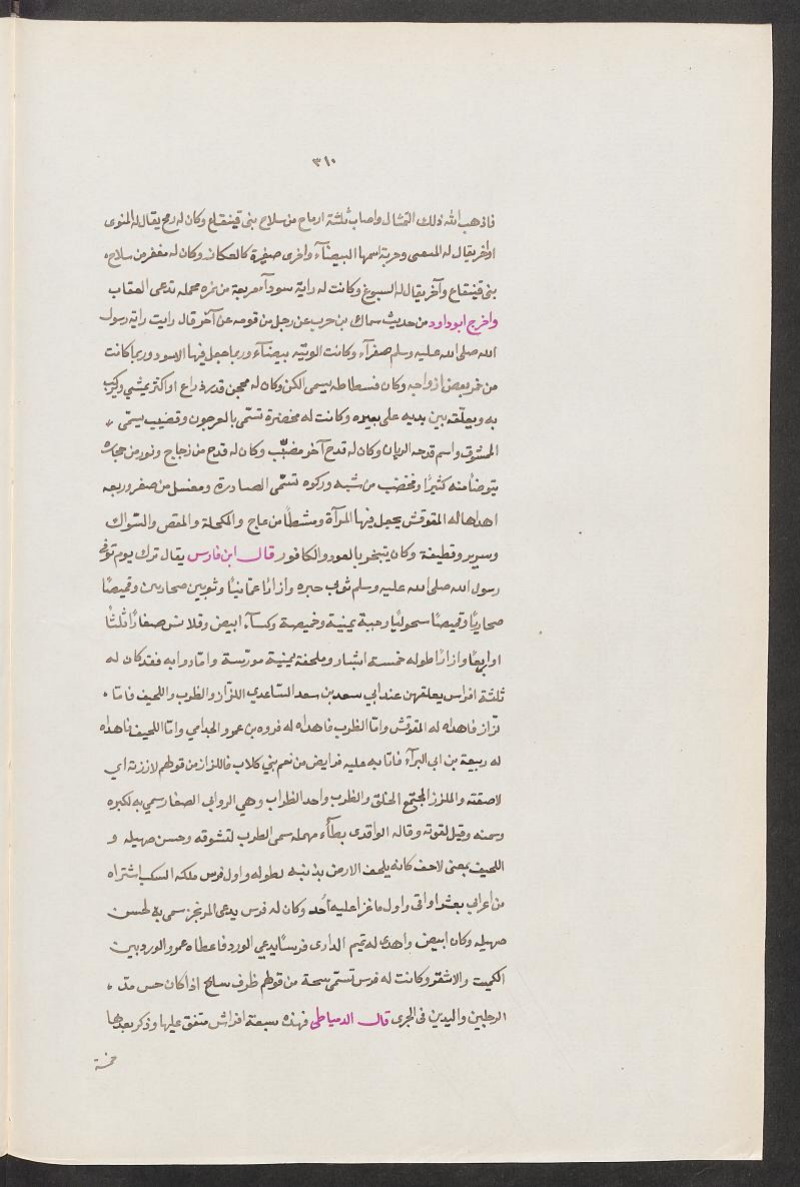 ٣١٠
فاذهب الله ذلك التمثال واصاب ثلثة ارماح من سلاح بنى قينقاع وكان له رمح يقال له المثوى
واخر يقال له المتثنى وحربة اسمها البيضآء واخرى صغيرة كالعكاز وكان له مغفر من سلاح
بنى قينقاع وآخر يقال له السبوغ وكانت له راية سودآء مربعة من نمره مخمله تدعى العقاب
واخرج ابو داود من حديث سماك بن حرب عن رجل من قومه عن آخر قال رايت راية رسول
الله صلى الله عليه وسلم صفرآء وكانت الويته بيضآء وربما جعل فيها الاسود وربما كانت
من خمر بعض ازواجه وكان فسطاطه يسمى الكن وكان له محجن قدر ذراع او اكثر يمشي ويركب
به ويعلقه بين يديه على بعيره وكانت له مخصرة تسمّى بالعرجون وقضيب يسمّى
الممشوق واسم قدحه الريان وكان له قدح آخر مضبّب وكان له قدح من زجاج وتور من حجاره
يتوضأ منه كثيرًا ومخضب من شبه وركوه تسمّى الصادرة ومغسل من صفر وربعه
اهداها له المقوقش يجعل فيها المرآة ومشطًا من عاج والمكحلة والمقص والسّواك
وسرير وقطيفة وكان يتبخر بالعود والكافور قال ابن فارس يقال ترك يوم توفى
رسول الله صلى الله عليه وسلم ثوبى حبره وازارًا عمّانيًا وثوبين صحاريين وقميصًا
صحاريًا وقميصًا سحوليًا وجبة يمنية وخميصة وكسآء ابيض وقلانس صغارًا ثلثًا
او اربعًا وازارًا طوله خمسة اشبار وملحفة يمنية مورّسة وامّا دوابه فقد كان له
ثلثة افراس يعلقهن عند ابي سعد بن سعد السّاعدي اللزاز والظرب واللحيف فامّا
لزاز فاهداه له المقوقش وامّا الظرب فاهداه له فروه بن عمرو الجذامي وامّا اللحيف فاهداه
له ربيعة بن ابي البرآء فاثابه عليه فرايض من نعم بني كلاب فاللزاز من قولهم لاززته اي
لاصقته والملزز المجتمع الخلق والظرب واحد الظراب وهي الروابي الصغار سمي به لكبره
وسمنه وقيل لقوته وقاله الواقدى بطآء مهمله سمى الطرب لتشوقه وحسن صهيله و
اللحيف بمعنى لاحف كانه يلحف الارض بذنبه لطوله واول فرس ملكه السكب اشتراه
من اعرابي بعشر اواقى واول ما غزا عليه اُحد وكان له فرس يدعى المرتجز سمى به لحسن
صهيله وكان ابيض واهدى له تميم الدارى فرسًا يدعي الورد فاعطاه عمر والورد بين
الكميت والاشقر وكانت له فرس تسمّى سبحة من قولهم طرف سابح اذا كان حسن مدّ
الرجلين واليدين فى الجرى قال الدمياطى فهذه سبعة افراس متفق عليها وذكر بعدها
خمسة